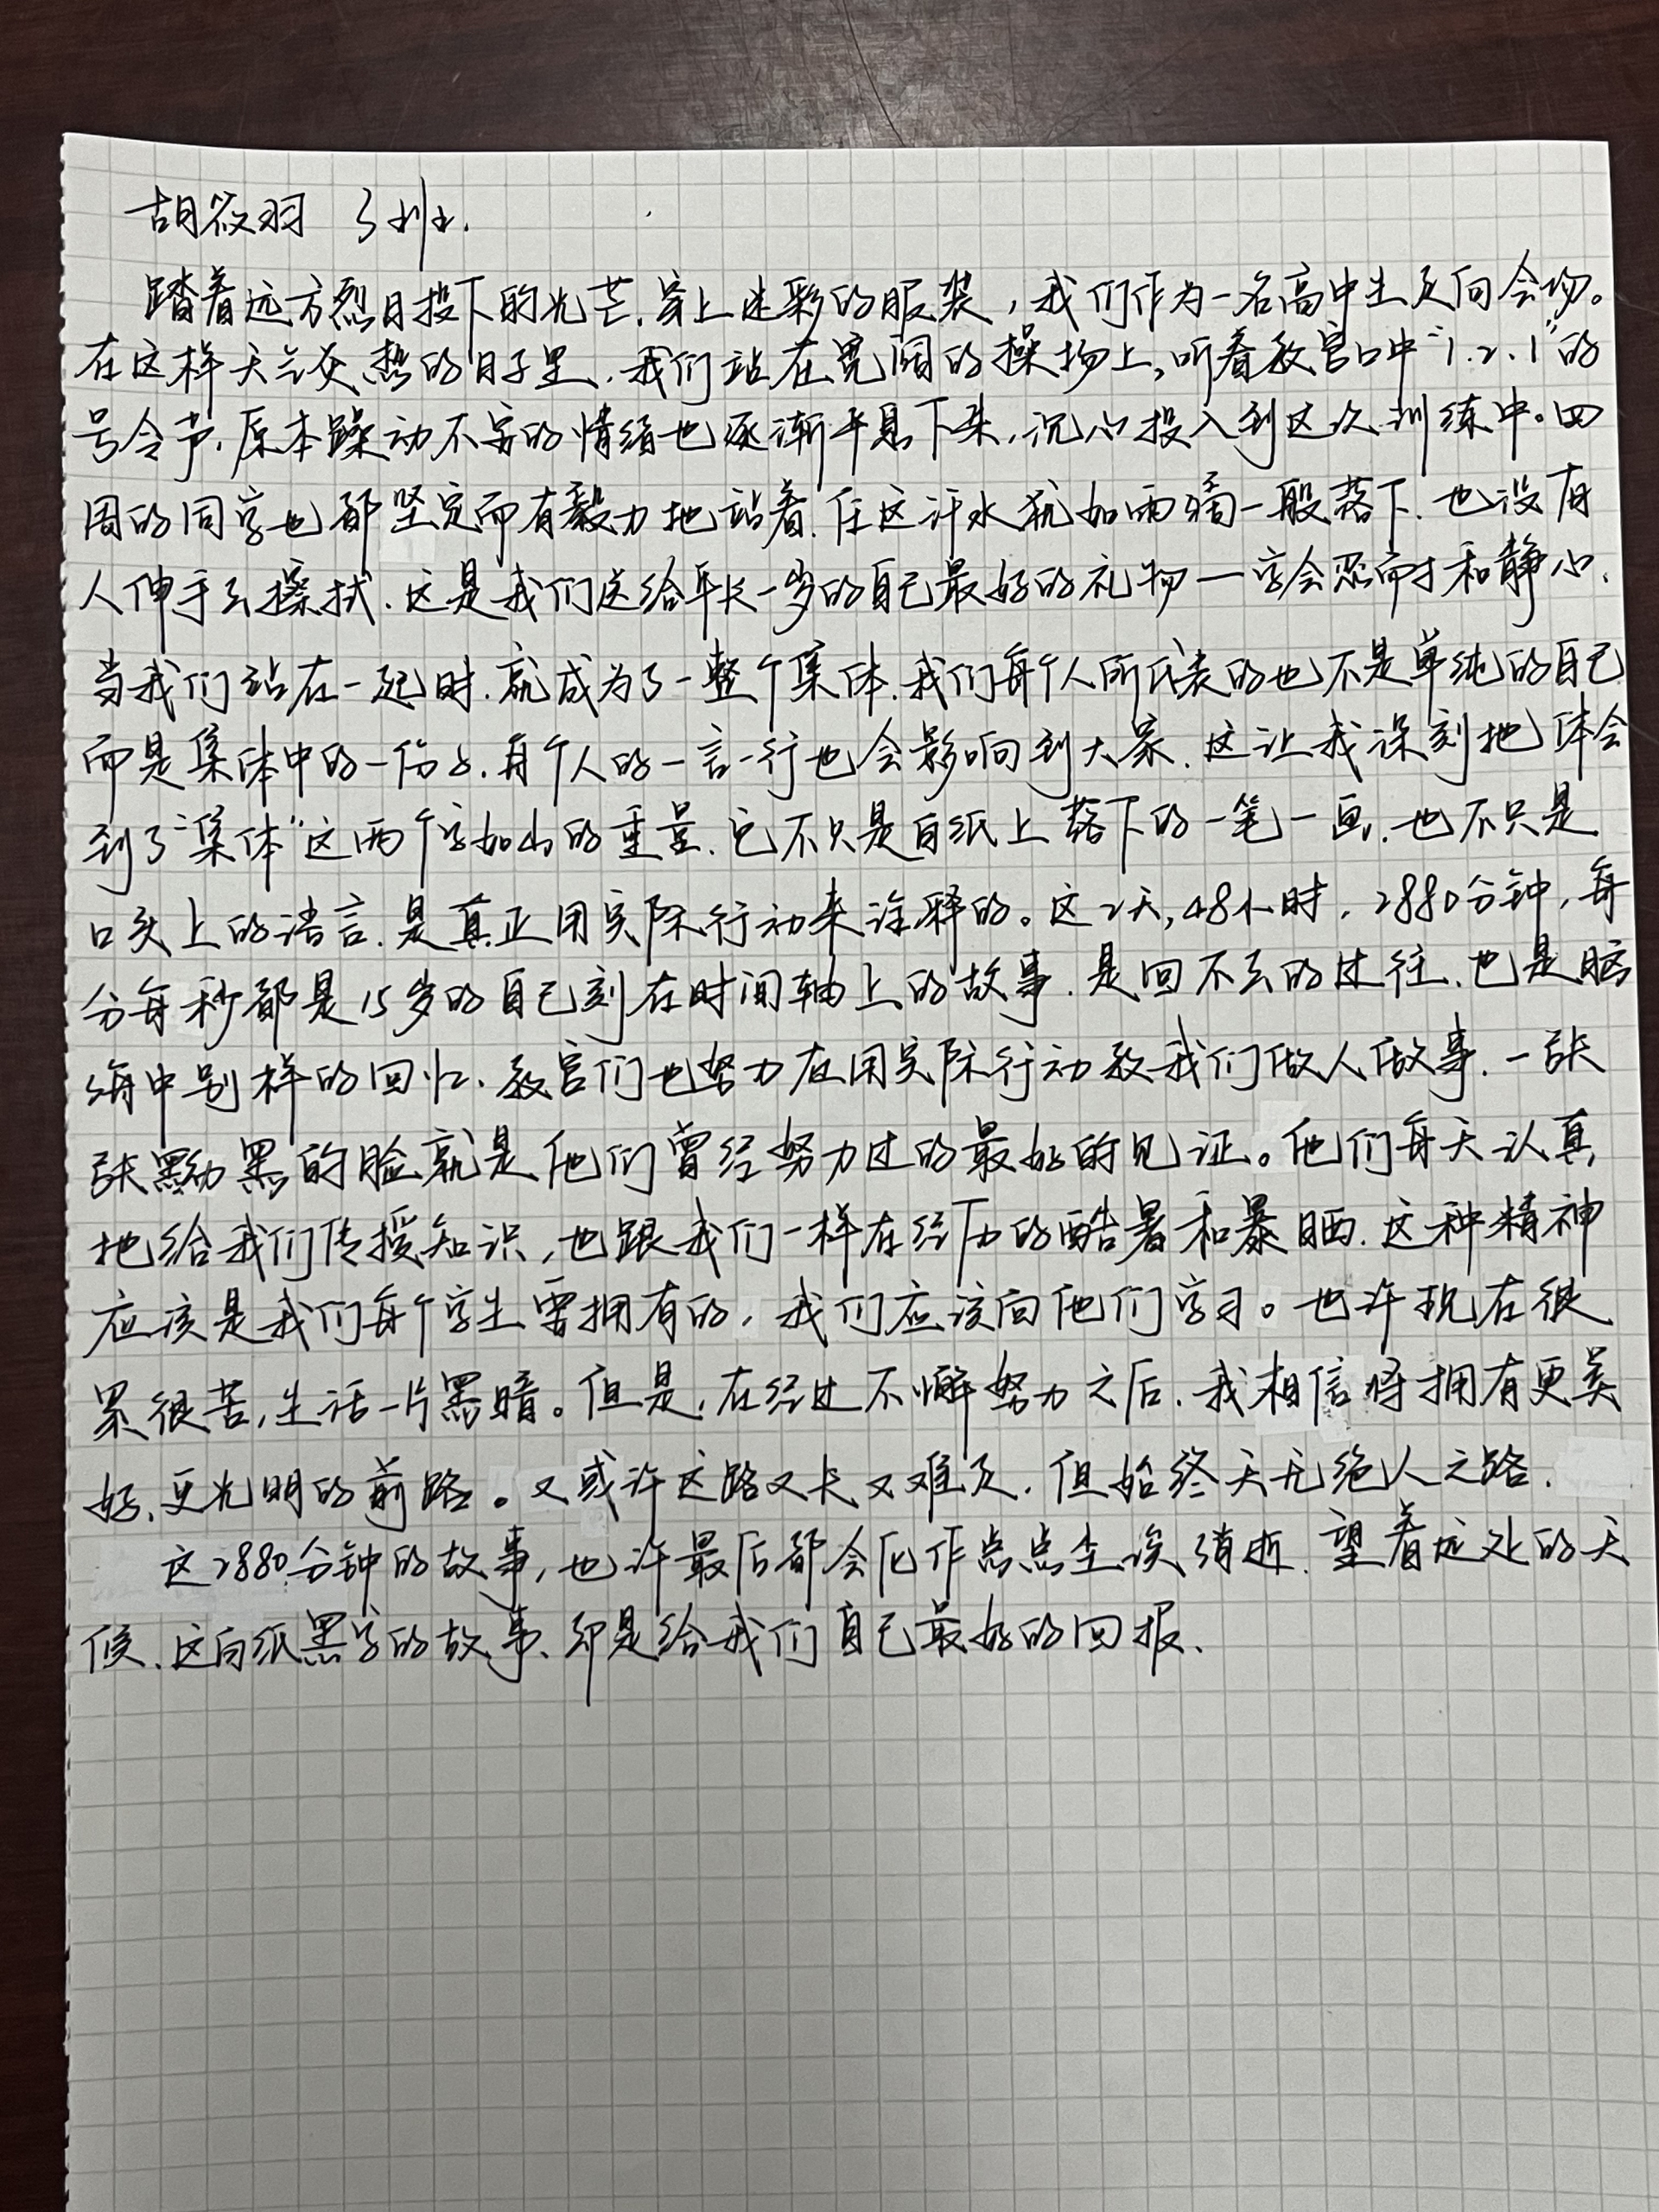 胡筱羽 3班.
踏着远方烈日投下的光芒.穿上迷彩的服装，我们作为一名高中生走向会场。
在这样天气炎热的日子里.我们站在宽阔的操场上,听着教官口中“1.2.1”的
号令声.原本躁动不安的情绪也逐渐平息下来.沉心投入到这次训练中。四
周的同学也都坚定而有毅力地站着.任这汗水犹如雨滴一般落下.也没有
人伸手去擦拭.这是我们送给年长一岁的自己最好的礼物—学会忍耐和静心.
当我们站在一起时.就成为了一整个集体.我们每个人所代表的也不是单纯的自己
而是集体中的一份子.每个人的一言一行也会影响到大家.这让我深刻地体会
到了“集体”这两个字如山的重量.它不只是白纸上落下的一笔一画.也不只是
口头上的语言.是真正用实际行动来诠释的。这2天,48小时，2880分钟,每
分每秒都是15岁的自己刻在时间轴上的故事.是回不去的过往.也是脑
海中别样的回忆.教官们也努力在用实际行动教我们做人做事.一张
张黝黑的脸就是他们曾经努力过的最好的见证。他们每天认真
地给我们传授知识,也跟我们一样在经历的酷暑和暴晒.这种精神
应该是我们每个学生需拥有的,我们应该向他们学习。也许现在很
累很苦,生活一片黑暗。但是.在经过不懈努力之后.我相信将拥有更美
好.更光明的前路。又或许这路又长又难走.但始终天无绝人之路.
这2880分钟的故事,也许最后都会化作点点尘埃消逝.望着远处的天
候.这白纸黑字的故事、却是给我们自己最好的回报.